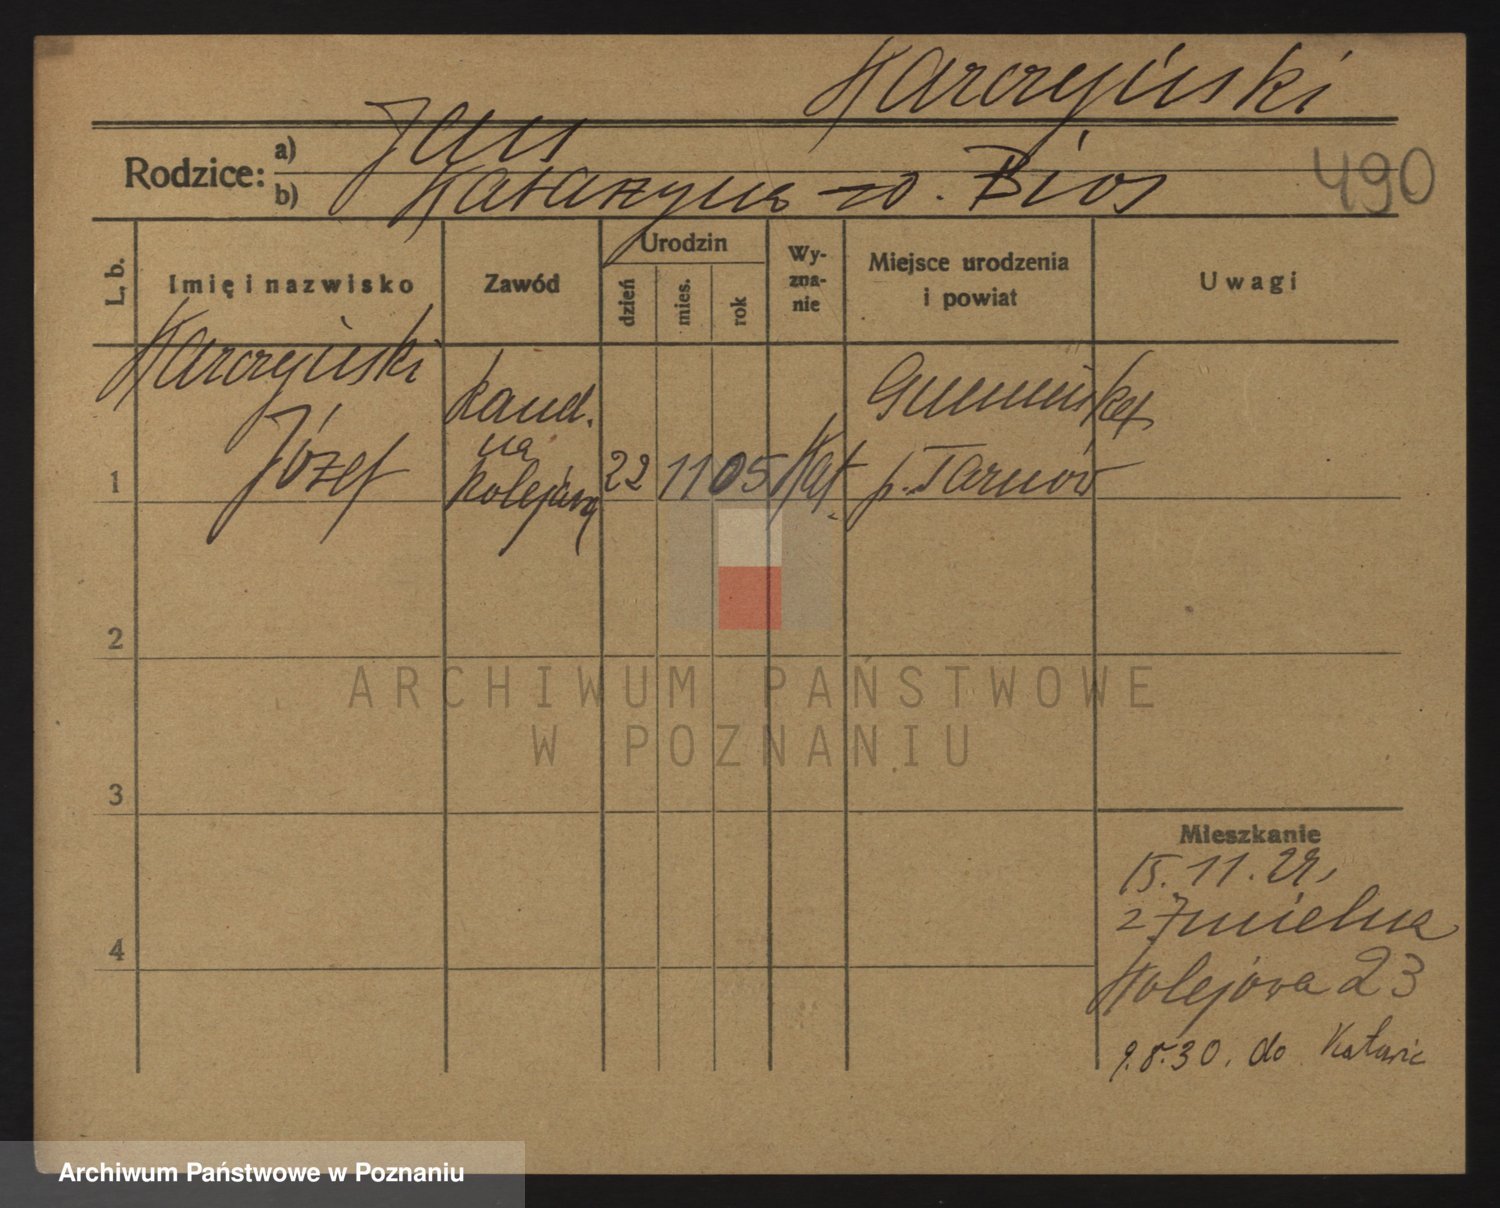 Karczyński
Rodzice: a) Jan
b) Katarzyna zd. Bios
490
L. b.
Imię i nazwisko
Zawód
Urodzin
dzień
mies.
rok
Wy-
zna-
nie
Miejsce urodzenia
i powiat
Uwagi
1
Karczyński
Józef
kand.
na
kolejową
22
11
05
Kat.
p. Tarnów
2
3
4
ARCHIWUM PAŃSTWOWE
W POZNANIU
Mieszkanie
15. 11. 29,
Kolejowa 23
9.8.30. do Katowic
Archiwum Państwowe w Poznaniu